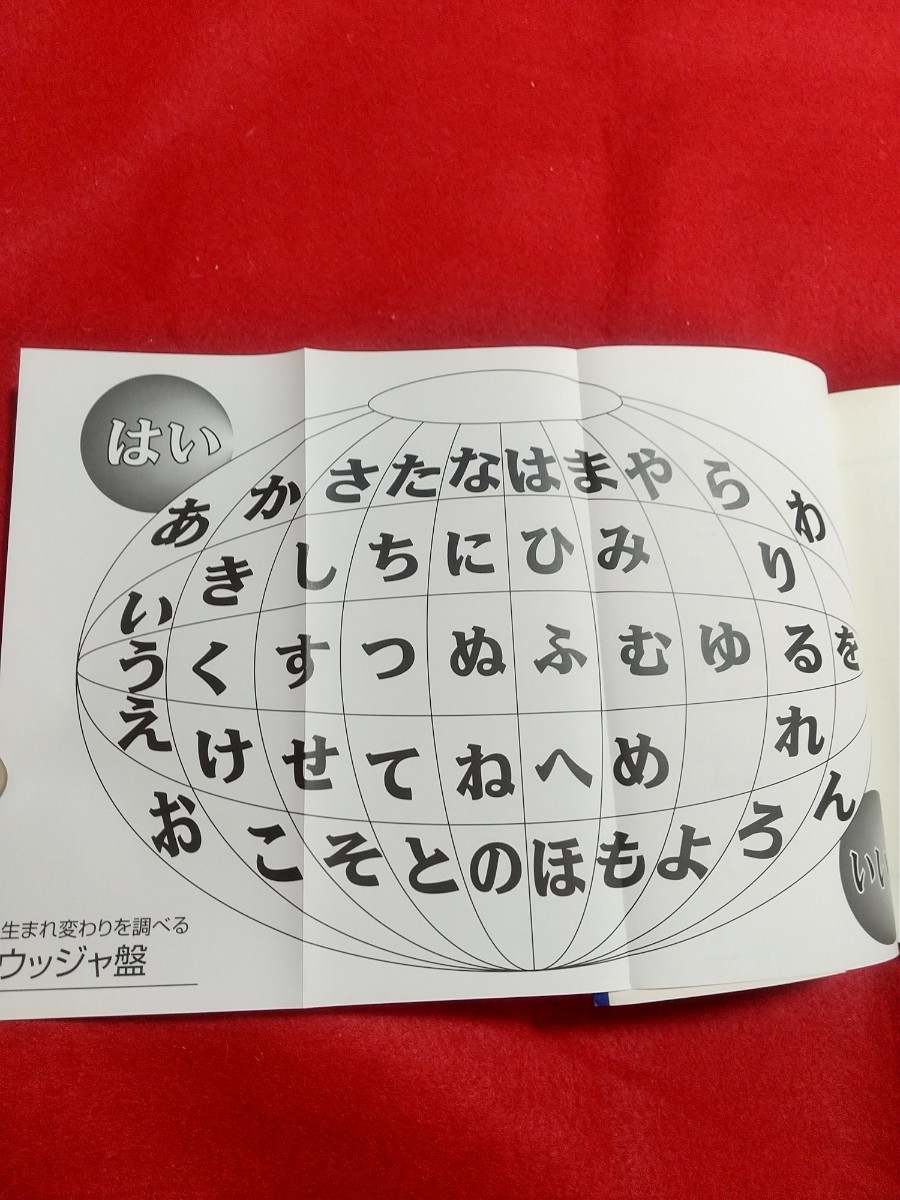 はい
あかさたなはまやらわ
いきしちにひみり
うくすつぬふむゆるを
えけせてねへめれ
おこそとのほもよろん
生まれ変わりを調べる
ウッジャ盤